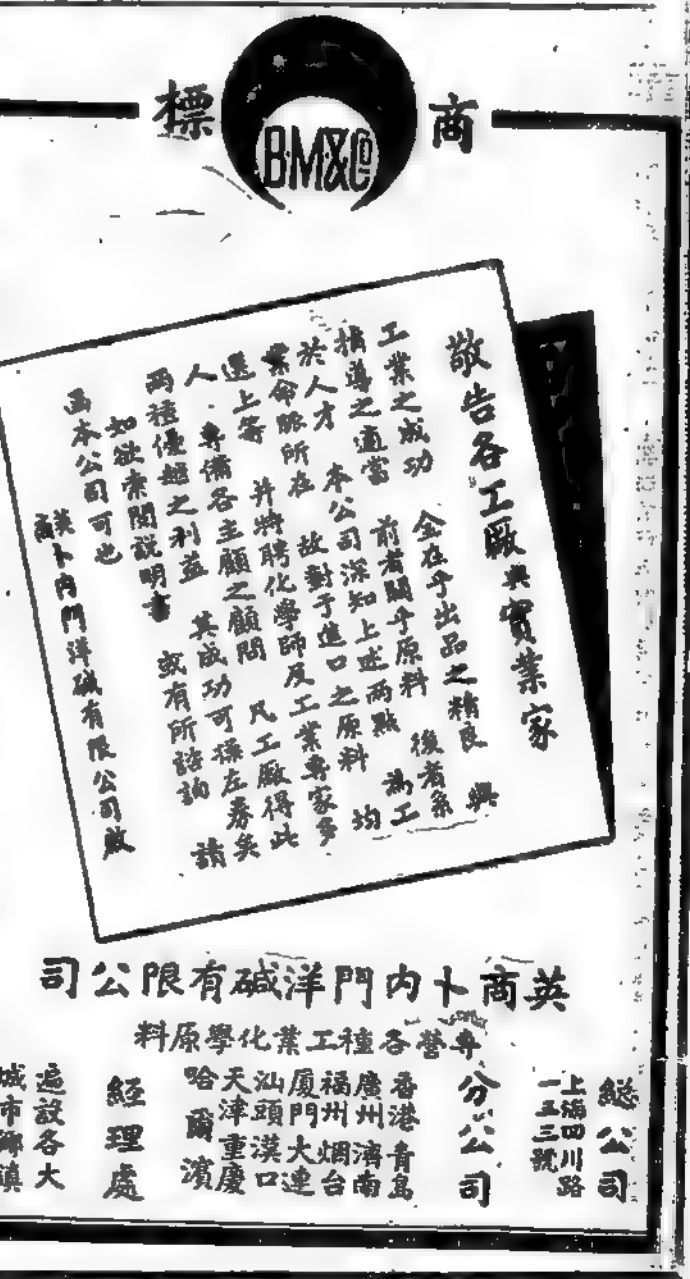 商標
B·M&Co
敬告各工廠與實業家
工業之成功 全在乎出品之精良 與
指導之適當 前者關乎原料 後者系
於人才 本公司深知上述兩點 為工
業命脈所在 故對于進口之原料 均
選上等 并特聘化學師及工業專家多
人 專備各主顧之顧問 凡工廠得此
兩種優越之利益 其成功可操左券矣
如欲索閱說明書 或有所諮詢 請
函本公司可也
英商卜內門洋碱有限公司啟
英商卜內門洋碱有限公司
專營各種工業化學原料
總公司
上海四川路
一五三號
分公司
香港青島
廣州濟南
福州烟台
厦門大連
汕頭漢口
天津重慶
哈爾濱
經理處
遍設各大
城市鄉鎮